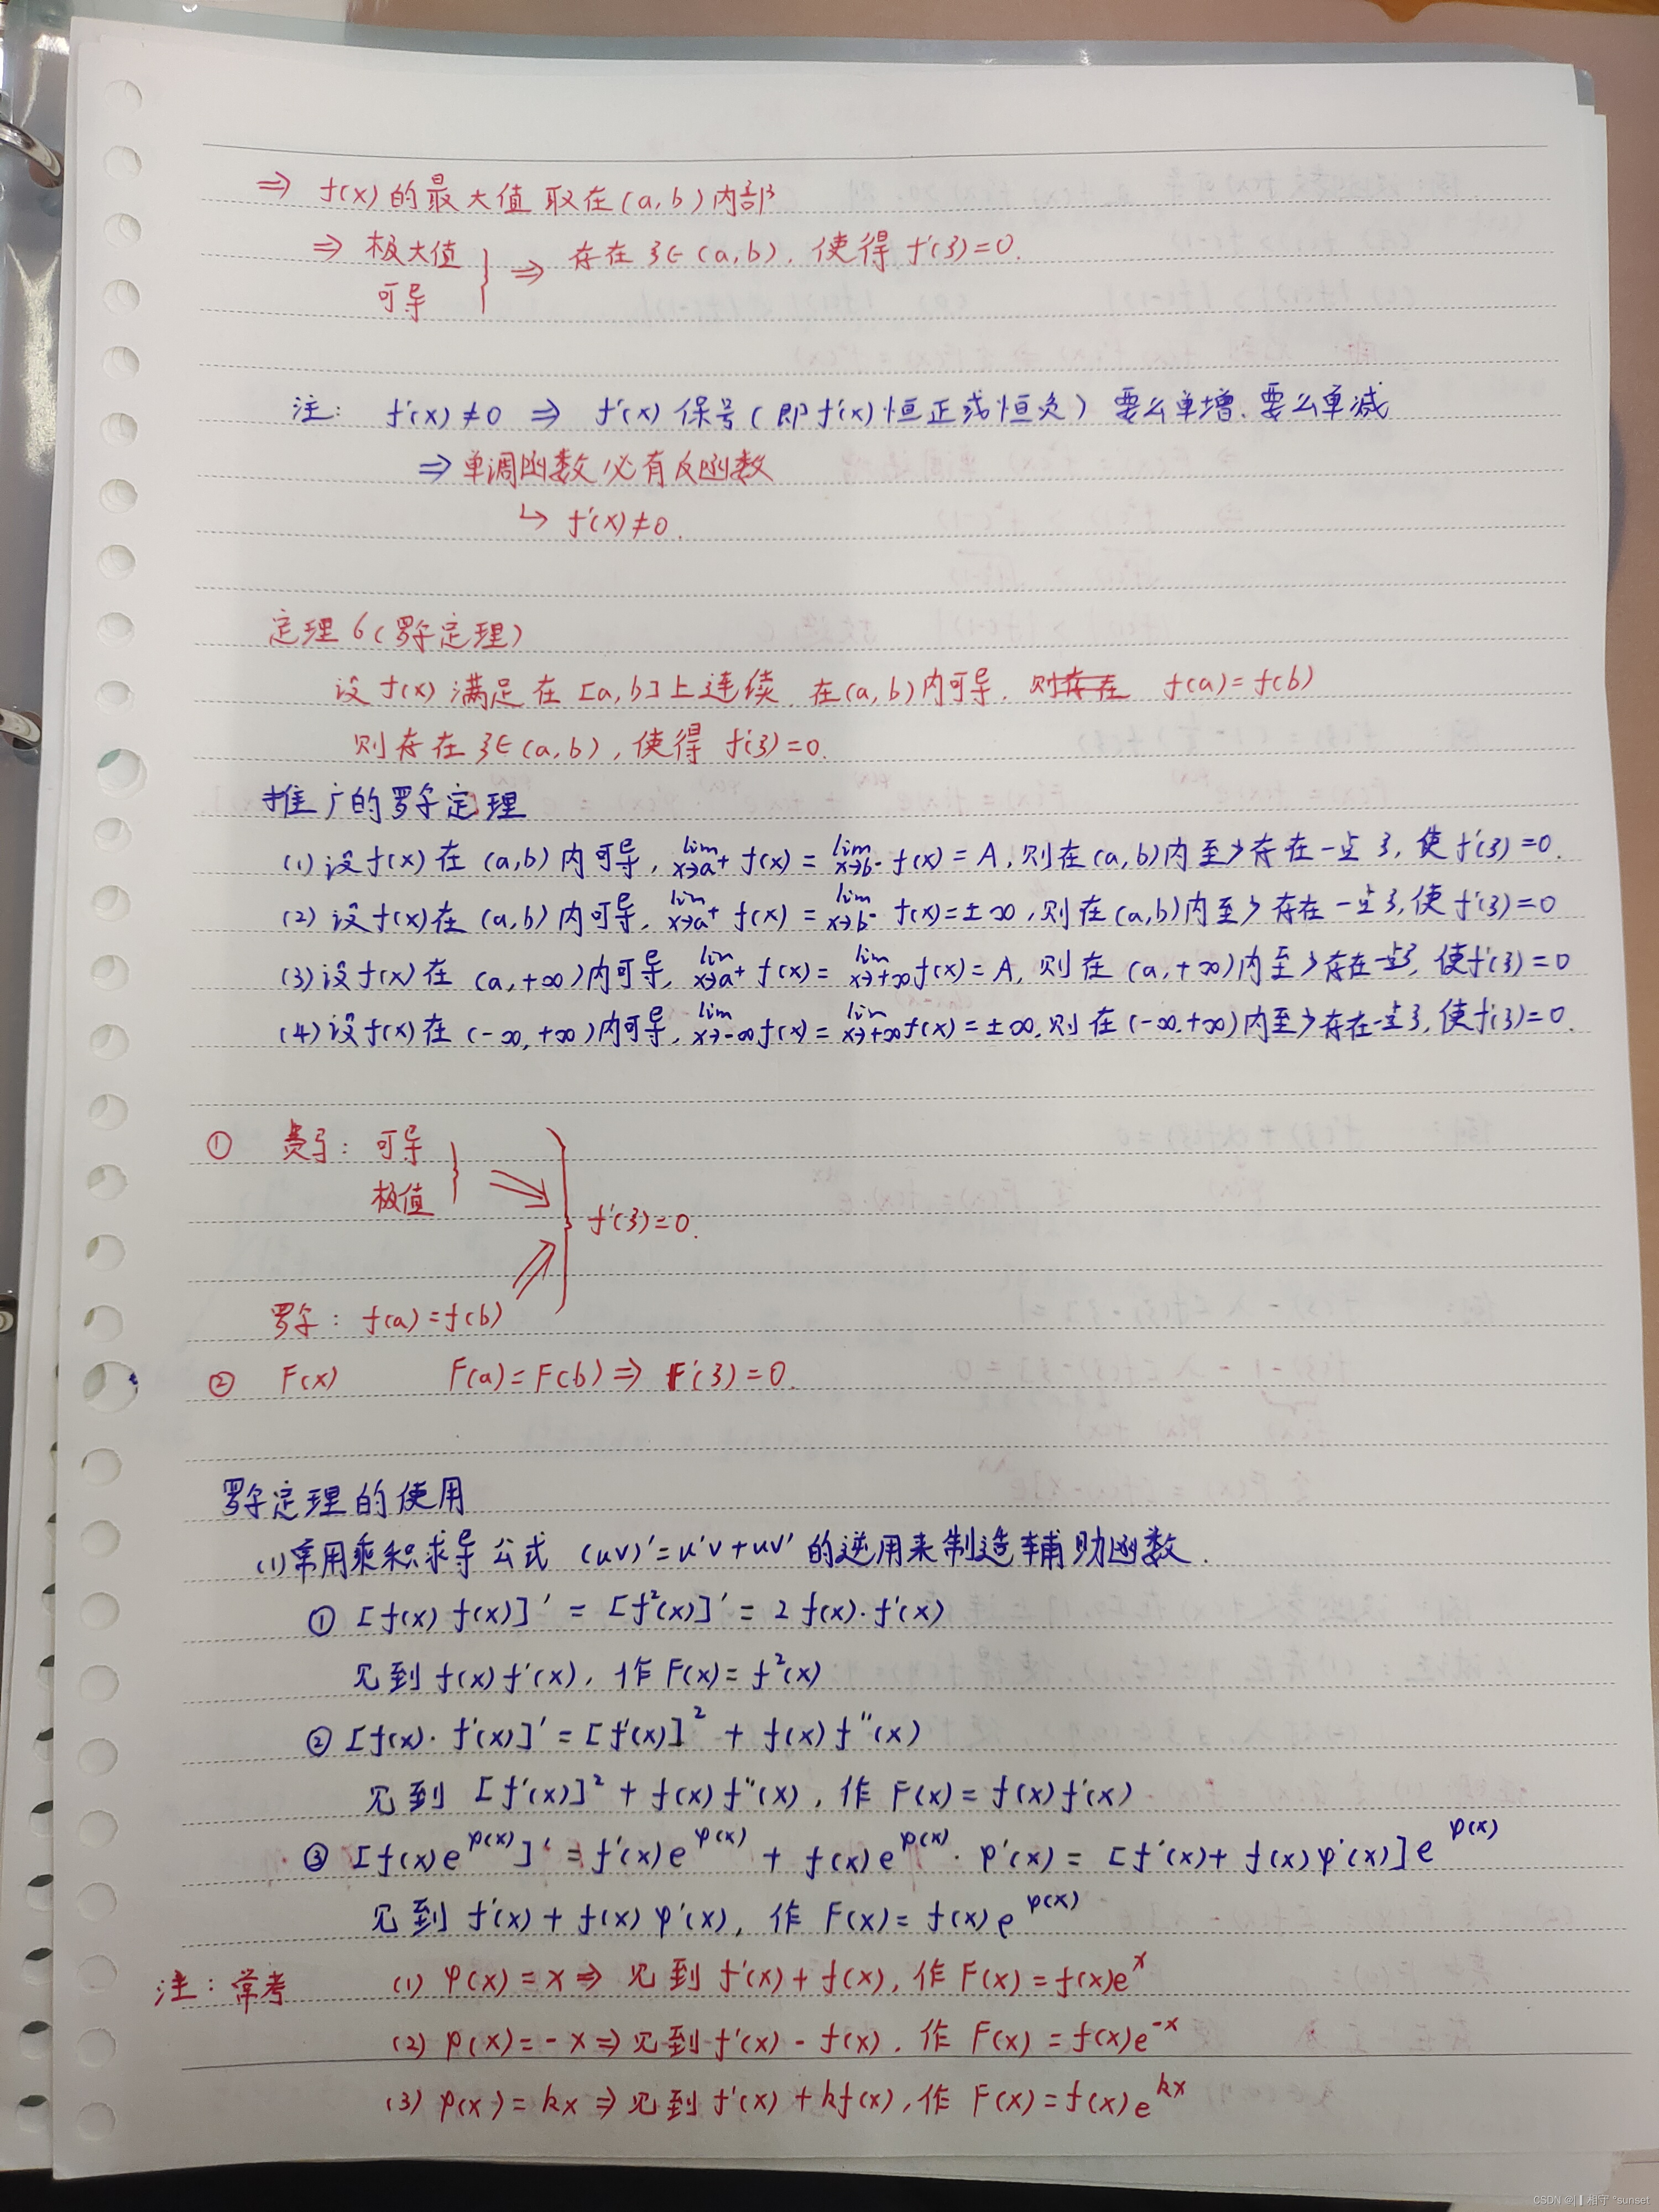 ⇒ f(x)的最大值取在(a,b)内部
⇒ 极大值
可导
⇒ 存在ξ∈(a,b),使得f'(ξ)=0.
注: f'(x)≠0 ⇒ f'(x)保号(即f'(x)恒正或恒负) 要么单增、要么单减
⇒单调函数必有反函数
↳ f'(x)≠0.
定理6(罗尔定理)
设f(x)满足在[a,b]上连续.在(a,b)内可导, 则存在 f(a)=f(b)
则存在ξ∈(a,b),使得f'(ξ)=0.
推广的罗尔定理
(1)设f(x)在(a,b)内可导, lim x→a⁺ f(x)= lim x→b⁻ f(x)=A,则在(a,b)内至少存在一点ξ,使f'(ξ)=0.
(2)设f(x)在(a,b)内可导, lim x→a⁺ f(x)= lim x→b⁻ f(x)=±∞,则在(a,b)内至少存在一点ξ,使f'(ξ)=0
(3)设f(x)在(a,+∞)内可导, lim x→a⁺ f(x)= lim x→+∞ f(x)=A,则在(a,+∞)内至少存在一点ξ,使f'(ξ)=0
(4)设f(x)在(-∞,+∞)内可导, lim x→-∞ f(x)= lim x→+∞ f(x)=±∞,则在(-∞,+∞)内至少存在一点ξ,使f'(ξ)=0.
① 费马: 可导
极值
f'(ξ)=0.
罗尔: f(a)=f(b)
② F(x) F(a)=F(b)⇒ F'(ξ)=0.
罗尔定理的使用
(1)常用乘积求导公式 (uv)'=u'v+uv'的逆用来制造辅助函数.
① [f(x)f(x)]'=[f²(x)]'=2f(x)·f'(x)
见到f(x)f'(x),作F(x)=f²(x)
② [f(x)·f'(x)]'=[f'(x)]²+f(x)f''(x)
见到 [f'(x)]²+f(x)f''(x),作F(x)=f(x)f'(x)
③ [f(x)e^φ(x)]'=f'(x)e^φ(x)+f(x)e^φ(x)·φ'(x)=[f'(x)+f(x)φ'(x)]e^φ(x)
见到f'(x)+f(x)φ'(x),作F(x)=f(x)e^φ(x)
注:常考 (1) φ(x)=x⇒见到f'(x)+f(x),作F(x)=f(x)e^x
(2) φ(x)=-x⇒见到f'(x)-f(x),作F(x)=f(x)e^-x
(3) φ(x)=kx⇒见到f'(x)+kf(x),作F(x)=f(x)e^kx